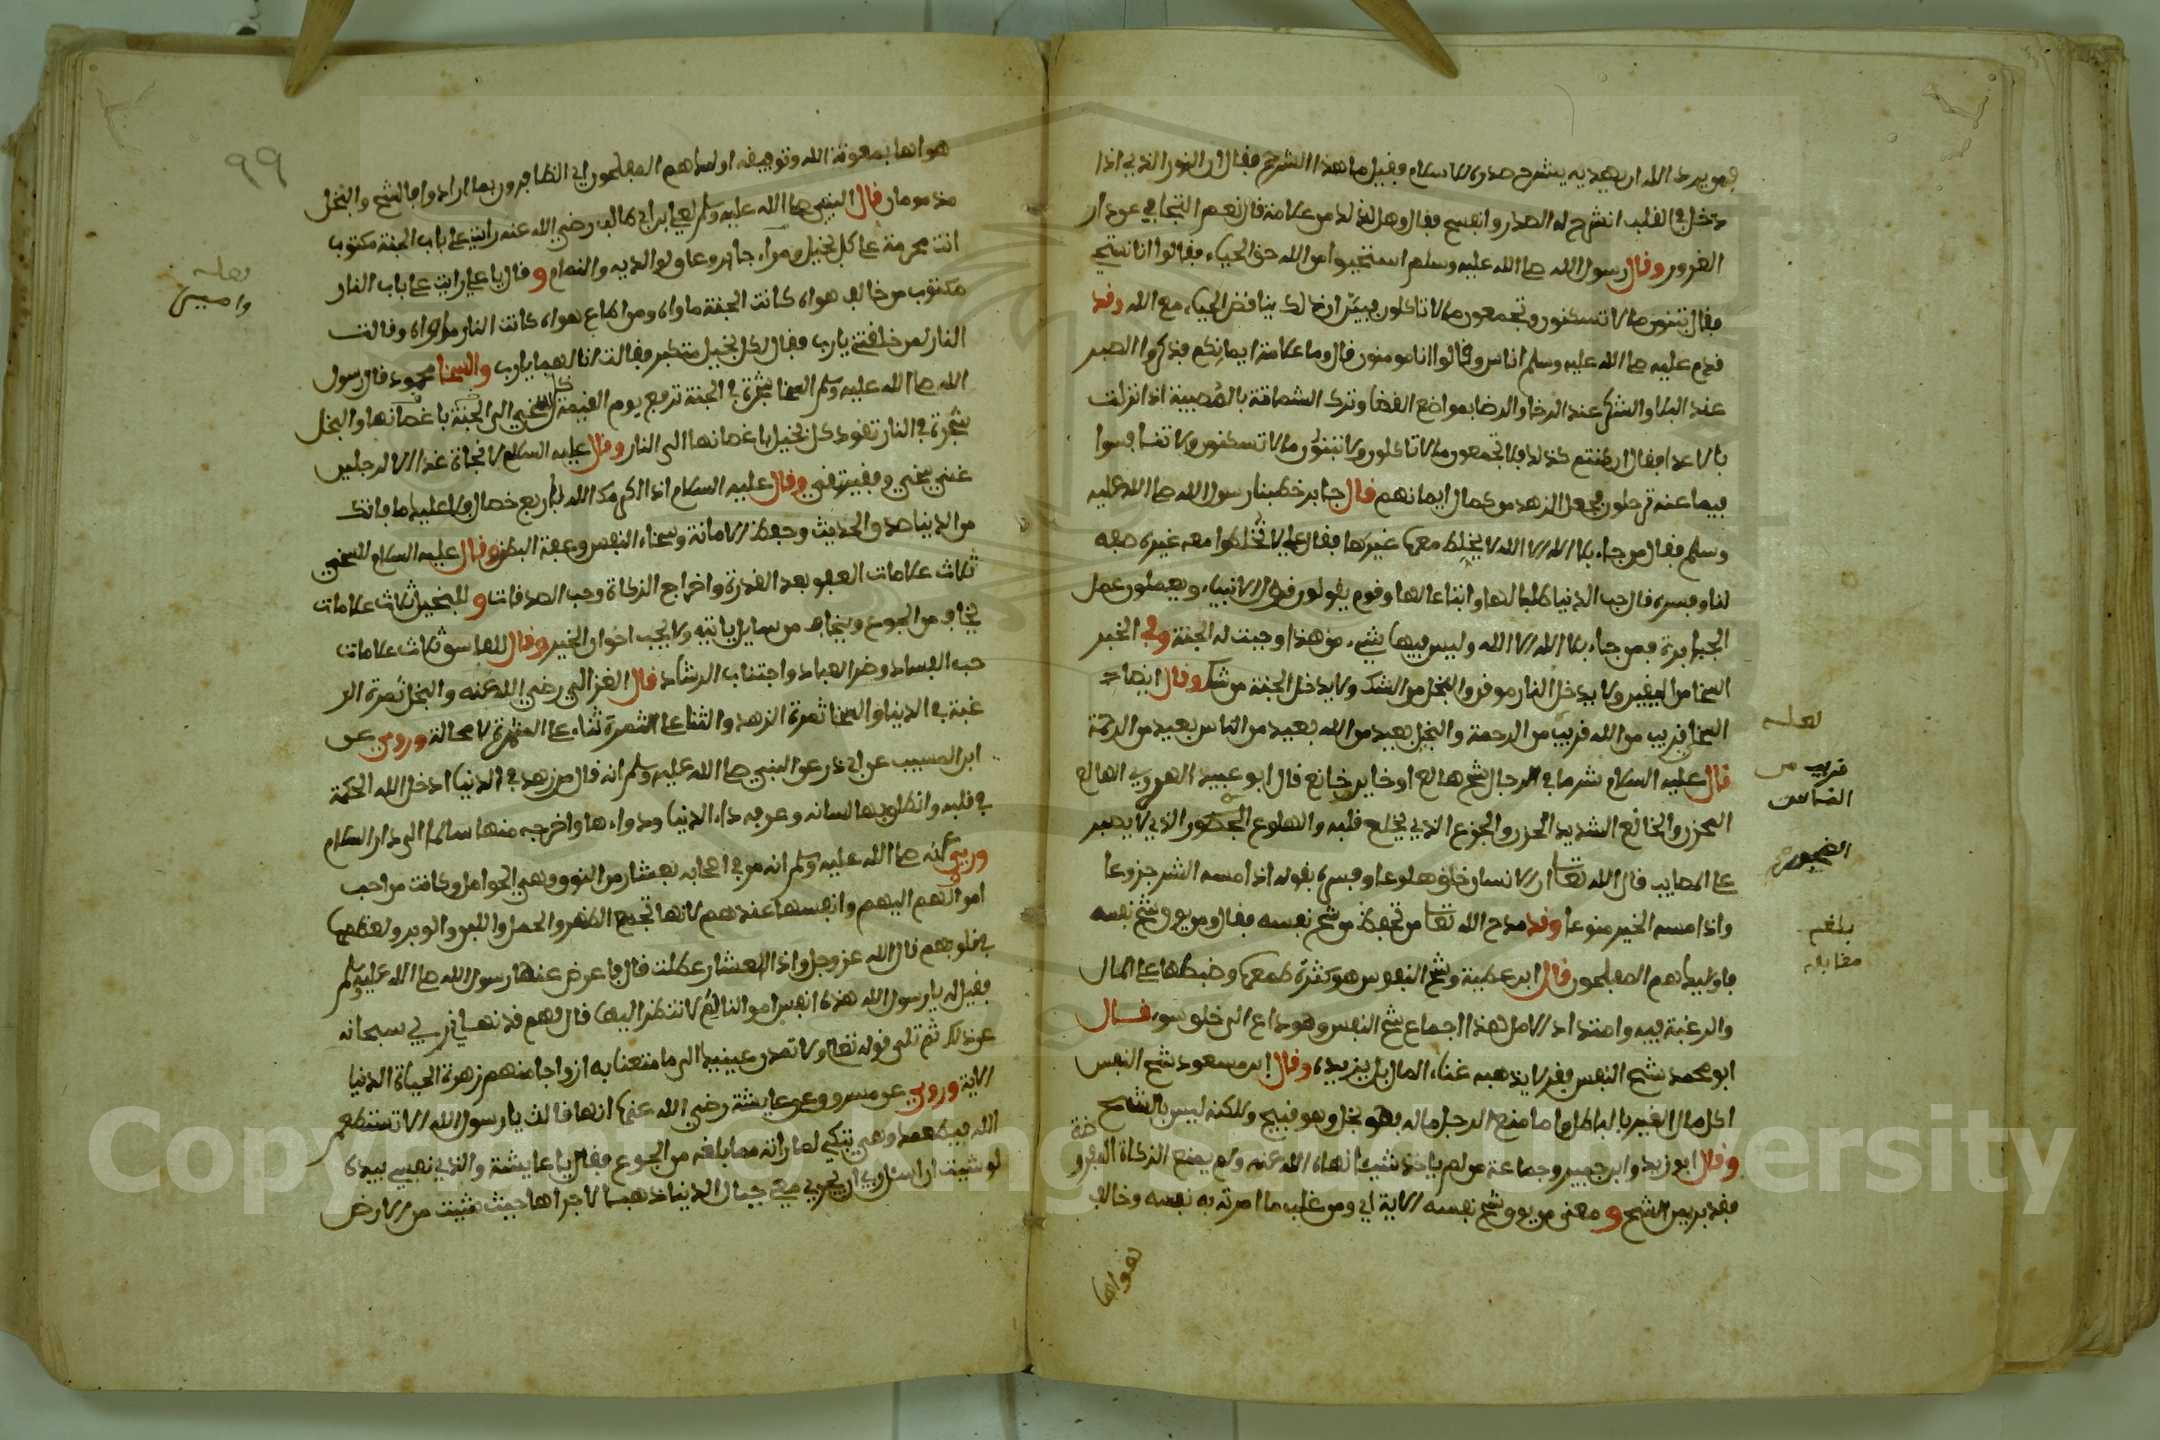 فمن يرد الله ان يهديه يشرح صدره للاسلام فقيل ما هذا الشرح فقال ان النور الذي اذا
دخل في القلب انشرح له الصدر وانفسح فقال وهل لذلك من علامة قال نعم التجافي عن دار
الغرور وقال رسول الله صلى الله عليه وسلم استحيوا من الله حق الحياء فقالوا انا نستحي
فقال تبنون ما لا تسكنون وتجمعون ما لا تاكلون فبين ان ذلك يناقض الحياء مع الله وقد
قدم عليه صلى الله عليه وسلم اناس وقالوا انا مومنون قال وما علامة ايمانكم فذكروا الصبر
عند البلا والشكر عند الرخا والرضا بمواضع القضا وترك الشماتة بالمصيبة اذا نزلت
بالاعدا فقال ان كنتم كذلك فلا تجمعون ما لا تاكلون ولا تبنون ما لا تسكنون ولا تنافسوا
فيما عنه ترحلون فجعل الزهد من كمال ايمانهم قال جابر خطبنا رسول الله صلى الله عليه
وسلم فقال من جاء بلا اله الا الله لا يخلط معها غيرها فقال علي لا تخلطوا معه غيره صفه
لنا وفسره قال حب الدنيا طلبا لها واتباعا لها وقوم يقولون قول الانبياء ويعملون عمل
الجبابرة فمن جاء بلا اله الا الله وليس فيها شيء من هذا وجبت له الجنة وفي الخبر
السخا من اليقين ولا يدخل النار موقن والبخل من الشك ولا يدخل الجنة من شك وقال ايضا
السخا قريب من الله قريب من الرحمة والبخل بعيد من الله بعيد من الناس بعيد من الرحمة
قال عليه السلام شر ما في الرجال شح هالع او خاير خانع قال ابو عبيد الهروي الهالع
المحزن والخالع الشديد الحزن والجزع الذي يخلع قلبه والهلوع الذي لا يصبر
على المصايب قال الله تعالى ان الانسان خلق هلوعا وفسره بقوله اذا مسه الشر جزوعا
واذا مسه الخير منوعا وقد مدح الله تعالى من تحفظ من شح نفسه فقال ومن يوق شح نفسه
فاوليك هم المفلحون قال ابن عطية وشح النفوس هو كثرة طمعها وضبطها على المال
والرغبة فيه وامتداد الامل هذا اجماع شح النفس وهو داع الى خلق سوء قال
ابو محمد شح النفس فقر لا يذهبه غناء المال بل يزيده وقال ابن مسعود شح النفس
اكل مال الغير بالباطل واما منع الرجل ماله فهو بخل وهو قبيح ولكنه ليس بالشح
وقال ابو زيد وابن جبير وجماعة من لم ياخذ شيئا نهاه الله عنه ولم يمنع الزكاة المفروضة
فقد بري من الشح و معنى من يوق شح نفسه الاية اي ومن غلب ما امرته به نفسه وخالف
هواها
لعله
قريب من
الناس
بلغت
مقابلة
٩٩
هواها بمعونة الله وتوفيقه اوليك هم المفلحون اي الظافرون بما ارادوا فالشح والبخل
مذمومان قال النبي صلى الله عليه وسلم لعلي ابن ابي طالب رضي الله عنه رايت على باب الجنة مكتوب
انت محرمة على كل بخيل ومراء جابر وعاق لوالديه والنمام وقال يا علي رايت على باب النار
مكتوب من خالف هواه كانت الجنة ماواه ومن اطاع هواه كانت النار ماواه وقالت
النار لمن خلقتني يارب فقال لكل بخيل متكبر فقالت انا لهما يارب والسخا محمود قال رسول
الله صلى الله عليه وسلم السخا شجرة في الجنة ترفع يوم القيمة كل سخي الى الجنة باغصانها والبخل
شجرة في النار تقود كل بخيل باغصانها الى النار وقال عليه السلام لا نجاة غدا الا لرجلين
غني سخي وفقير تقي وقال عليه السلام اذا اكرمك الله باربع خصال فلا عليك ما فاتك
من الدنيا صدق الحديث وحفظ الامانة وسخاء النفس وعفة البطن وقال عليه السلام للسخي
ثلاث علامات العفو بعد القدرة واخراج الزكاة وحب الصدقات و للبخيل ثلاث علامات
يخاف من الجوع ويخاف من سايل ياتيه ولا يحب اخوان الخير وقال للفاسق ثلاث علامات
حب الفساد وضر العباد واجتناب الرشاد قال الغزالي رضي الله عنه والبخل ثمرة الر
غبة في الدنيا والسخا ثمرة الزهد والثنا على الثمرة ثناء على المثمرة لا محالة وروي عن
ابن المسيب عن ابي ذر عن النبي صلى الله عليه وسلم انه قال من زهد في الدنيا ادخل الله الحكمة
في قلبه وانطلق بها لسانه وعرفه داء الدنيا ودواءها واخرجه منها سالما الى دار السلام
وروي عنه صلى الله عليه وسلم انه مر في اصحابه بعشار من النوق وهي الحوامل وكانت من احب
اموالهم اليهم وانفسها عندهم لانها تجمع الظهر والحمل واللبن والوبر ولعظمها
في قلوبهم قال الله عز وجل واذا العشار عطلت قال فاعرض عنها رسول الله صلى الله عليه وسلم
فقيل له يا رسول الله هذه انفس اموالنا لم لا تنظر اليها قال لهم قد نهاني ربي سبحانه
عن ذلك ثم تلى قوله تعالى ولا تمدن عينيك الى ما متعنا به ازواجا منهم زهرة الحياة الدنيا
الاية وروي عن مسروق عن عايشة رضي الله عنها انها قالت يا رسول الله الا تستطعم
الله فيطعمك وهي تبكي لما راته مما بلغه من الجوع فقال يا عايشة والذي نفسي بيده
لو شيت ان اسال ربي ان يجري معي جبال الدنيا ذهبا لاجراها حيث شيت من الارض
لعله